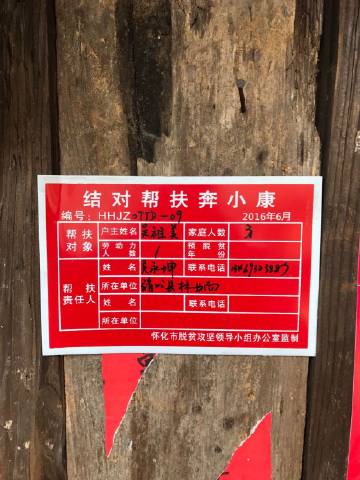 结对帮扶奔小康
编号:HHJZ07TD-09 2016年6月
帮扶对象 户主姓名 吴祖美 家庭人数
劳动力人数 1 预脱贫年份
帮扶责任人 姓名 吴永坤 联系电话
所在单位 靖州县林业局
姓名 联系电话
所在单位
怀化市脱贫攻坚领导小组办公室监制